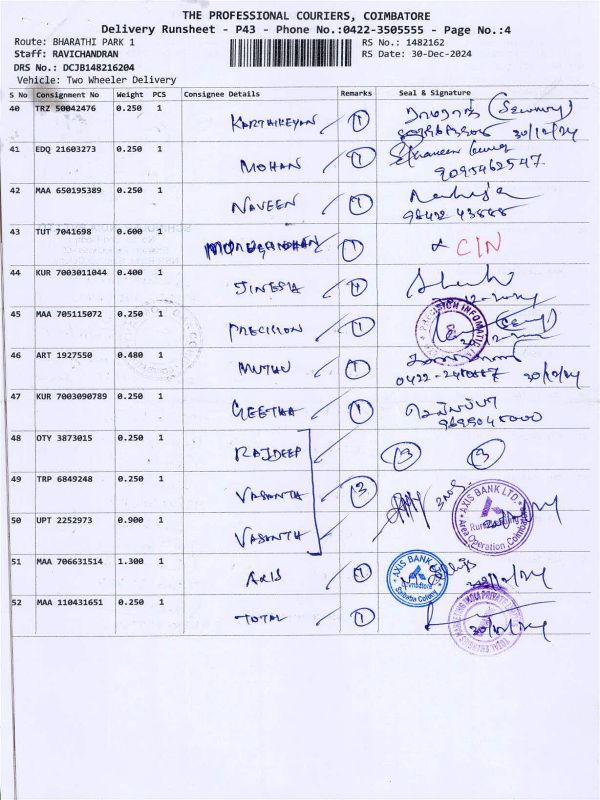 THE PROFESSIONAL COURIERS, COIMBATORE
Delivery Runsheet - P43 - Phone No.:0422-3505555 - Page No.:4
Route: BHARATHI PARK 1 RS No.: 1482162
Staff: RAVICHANDRAN RS Date: 30-Dec-2024
DRS No.: DCJB148216204
Vehicle: Two Wheeler Delivery
S No Consignment No Weight PCS Consignee Details Remarks Seal & Signature
40 TRZ 50042476 0.250 1 KARTHIKEYAN 1
30/12/24
41 EDQ 21603273 0.250 1 MOHAN 1
9095462547
42 MAA 650195389 0.250 1 NAVEEN 1
98422 43888
43 TUT 7041698 0.600 1 1 CIN
44 KUR 7003011044 0.400 1 JINESIA 1
45 MAA 705115072 0.250 1 PRECISION 1
46 ART 1927550 0.480 1 MUTHU 1
30/12/24
47 KUR 7003090789 0.250 1 GEETHA 1
9695045000
48 OTY 3873015 0.250 1 RAJDEEP 3 3
49 TRP 6849248 0.250 1 VASANTA 3
AXIS BANK LTD.
Area Operation, Coimbatore
50 UPT 2252973 0.900 1 VASANTH
51 MAA 706631514 1.300 1 AXIS 1
AXIS BANK LTD.
Saibaba Colony
52 MAA 110431651 0.250 1 TOTAL 1
30/12/24